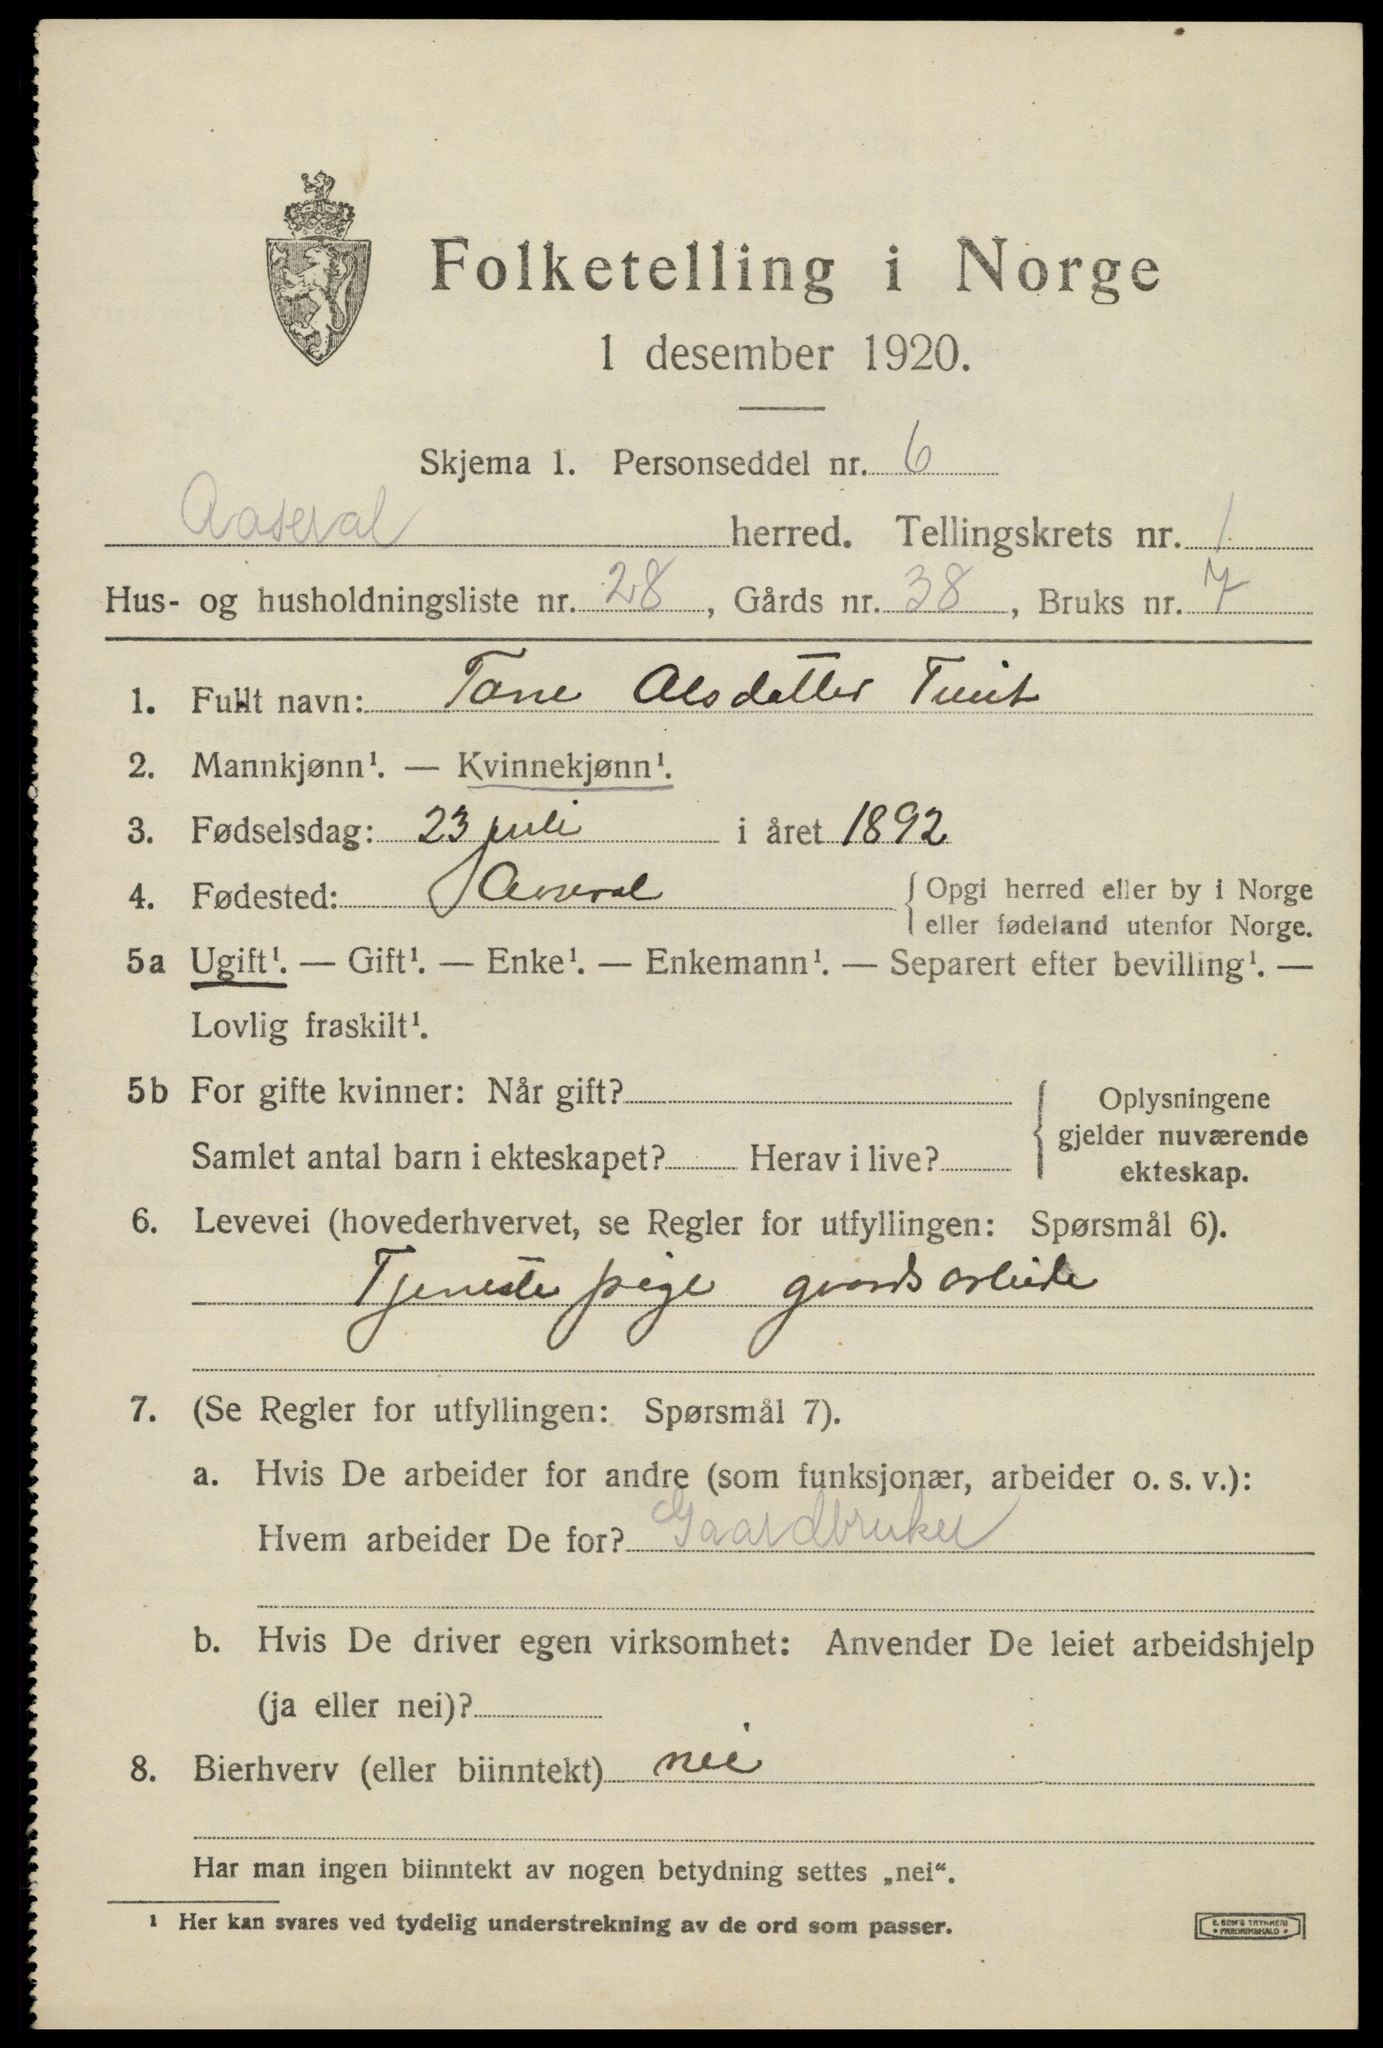 Folketelling i Norge
1 desember 1920.
Skjema 1. Personseddel nr. 6
Aaseral herred. Tellingskrets nr. 1
Hus- og husholdningsliste nr. 28, Gårds nr. 38, Bruks nr. 7
1. Fullt navn: Tone Alsdatter Tveit
2. Mannkjønn¹. — Kvinnekjønn¹.
3. Fødselsdag: 23 juli i året 1892
4. Fødested: Aaseral { Opgi herred eller by i Norge
eller fødeland utenfor Norge.
5a Ugift¹. — Gift¹. — Enke¹. — Enkemann¹. — Separert efter bevilling¹. —
Lovlig fraskilt¹.
5b For gifte kvinner: Når gift?
Samlet antal barn i ekteskapet? Herav i live?
Oplysningene
gjelder nuværende
ekteskap.
6. Levevei (hovederhvervet, se Regler for utfyllingen: Spørsmål 6).
Tjeneste pige gaardsarbeide
7. (Se Regler for utfyllingen: Spørsmål 7).
a. Hvis De arbeider for andre (som funksjonær, arbeider o. s. v.):
Hvem arbeider De for? Gaardbruker
b. Hvis De driver egen virksomhet: Anvender De leiet arbeidshjelp
(ja eller nei)?
8. Bierhverv (eller biinntekt) nei
Har man ingen biinntekt av nogen betydning settes „nei“.
¹ Her kan svares ved tydelig understrekning av de ord som passer.
E. SEM'S TRYKKERI
• FREDRIKSHALD •